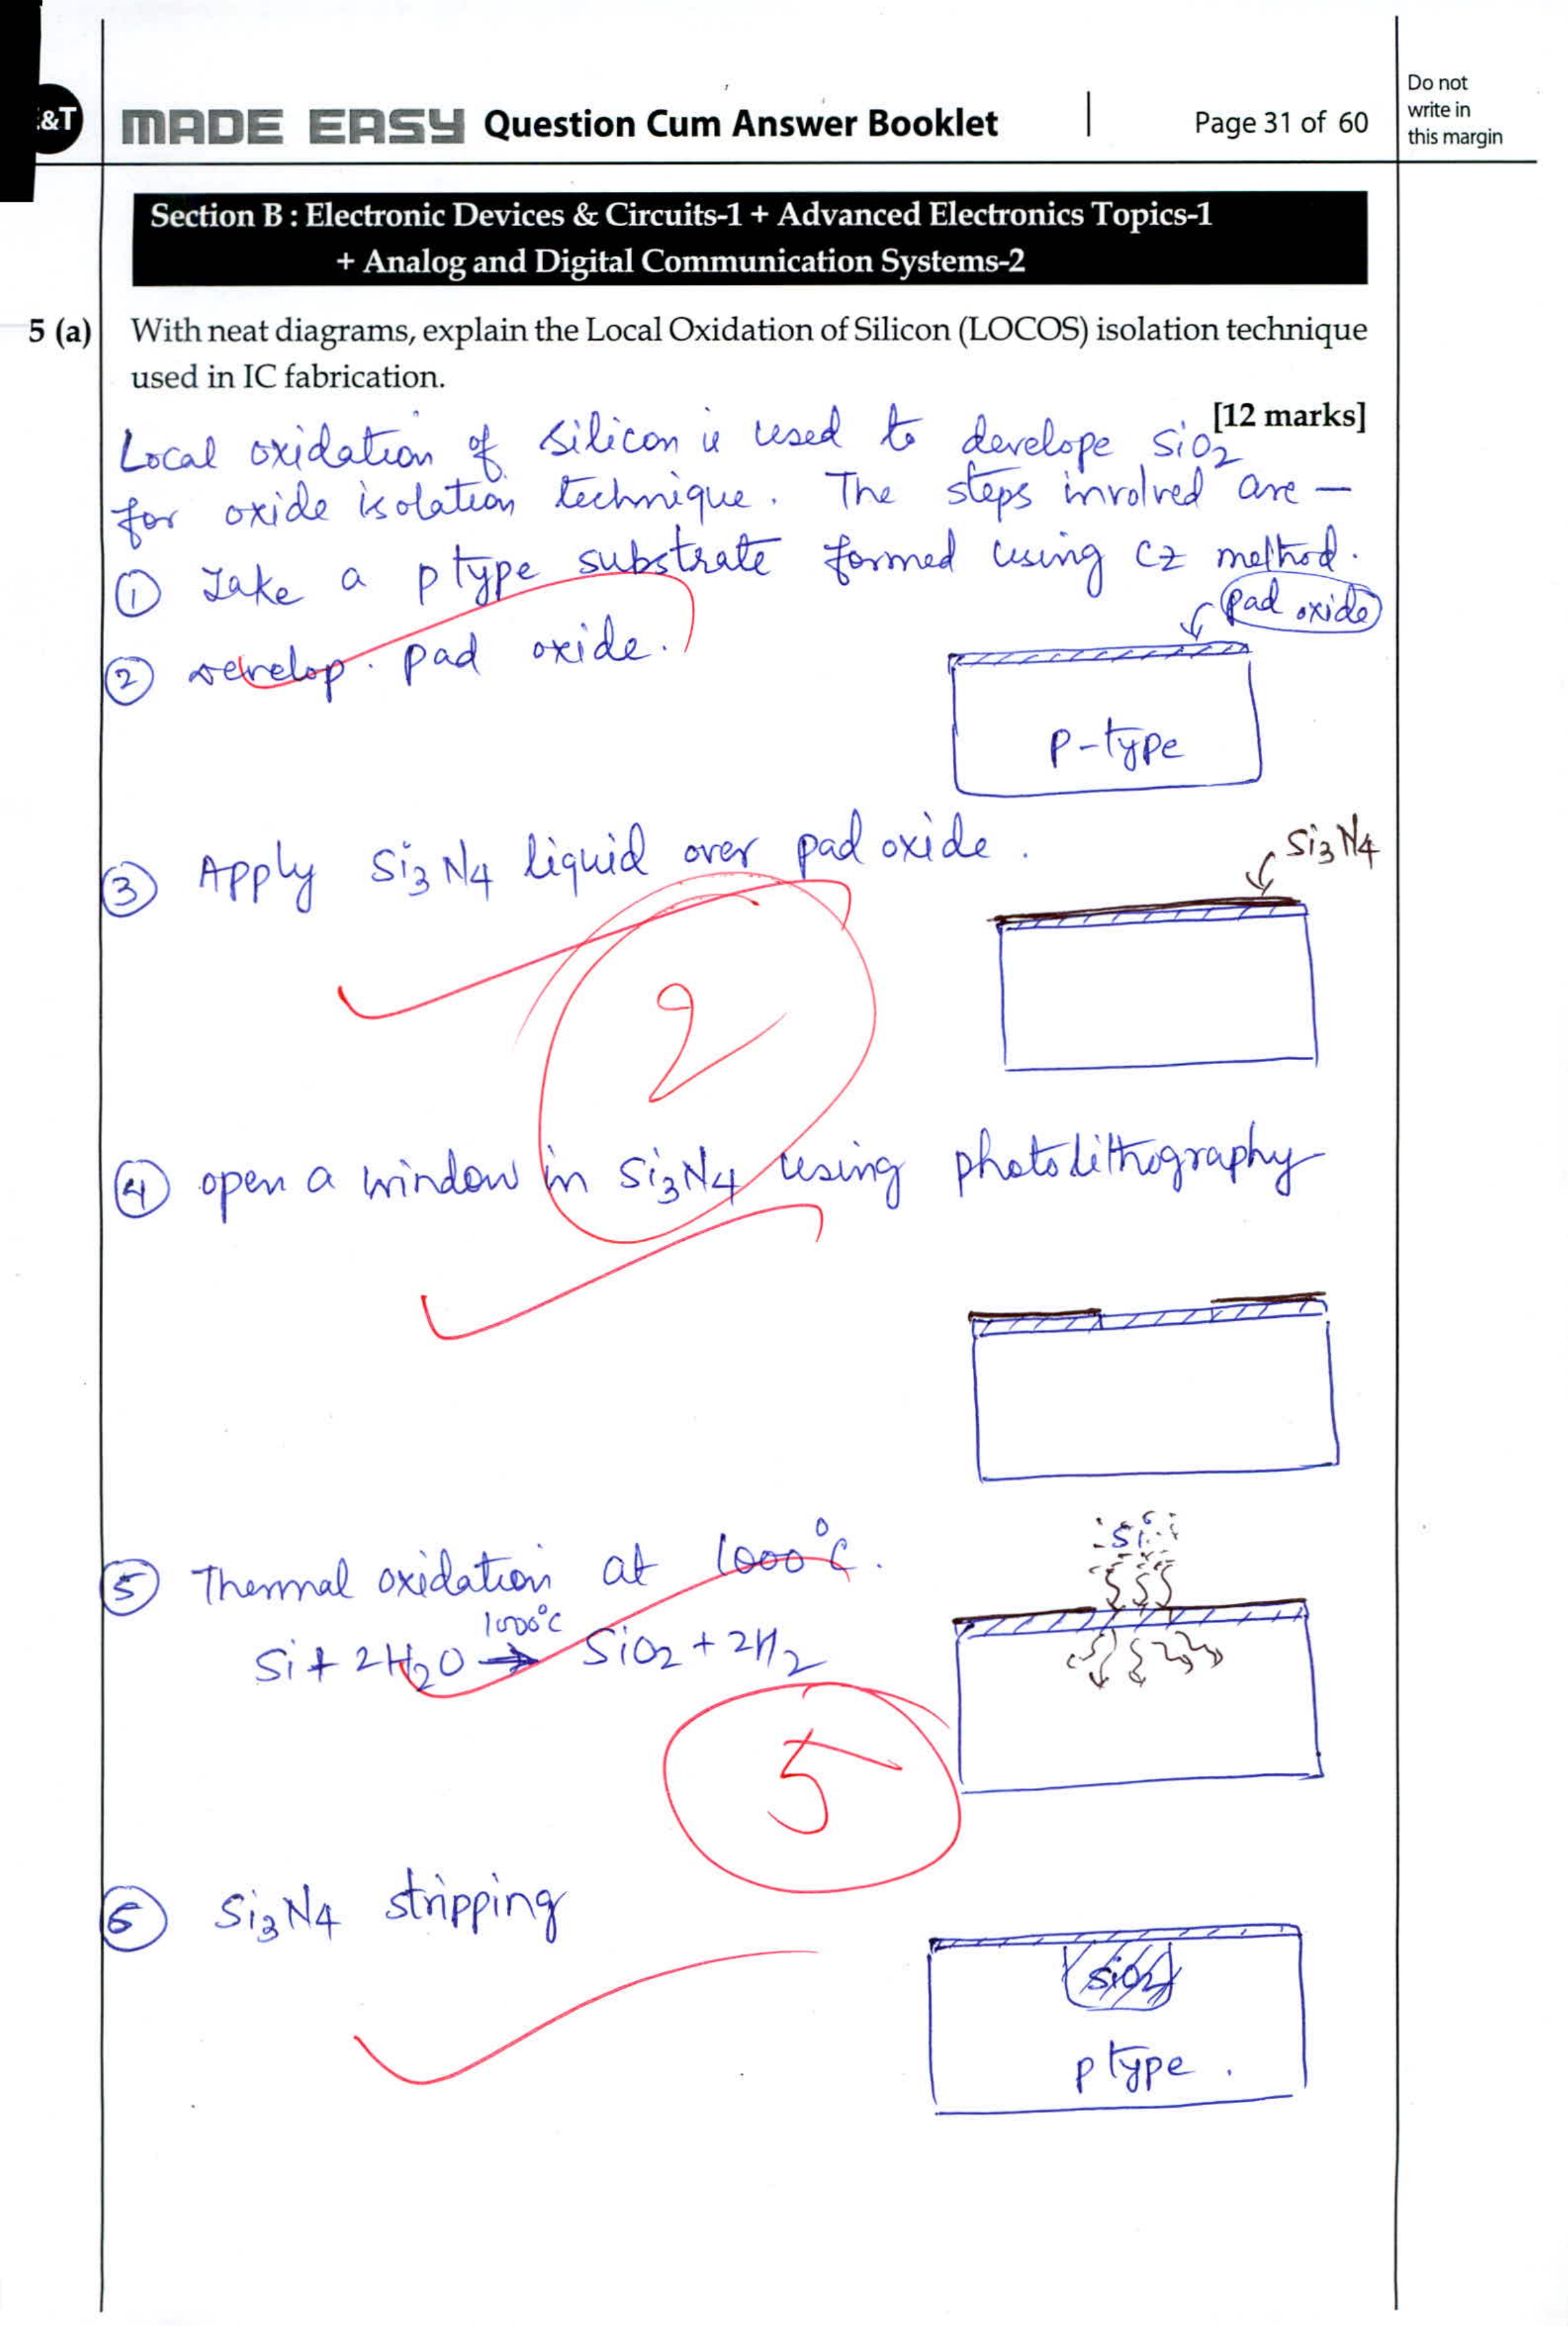 Do not
write in
this margin
E&T
MADE EASY Question Cum Answer Booklet | Page 31 of 60
Section B : Electronic Devices & Circuits-1 + Advanced Electronics Topics-1
+ Analog and Digital Communication Systems-2
5 (a) With neat diagrams, explain the Local Oxidation of Silicon (LOCOS) isolation technique
used in IC fabrication.
[12 marks]
Local oxidation of silicon is used to develope SiO2
for oxide isolation technique. The steps involved are —
① Take a p type substrate formed using CZ method.
pad oxide
② Develop pad oxide.
P-type
③ Apply Si3N4 liquid over pad oxide.
Si3N4
2
④ open a window in Si3N4 using photolithography
⑤ Thermal oxidation at 1000°C.
1000°C
Si + 2H2O → SiO2 + 2H2
5
⑥ Si3N4 stripping
SiO2
p type.